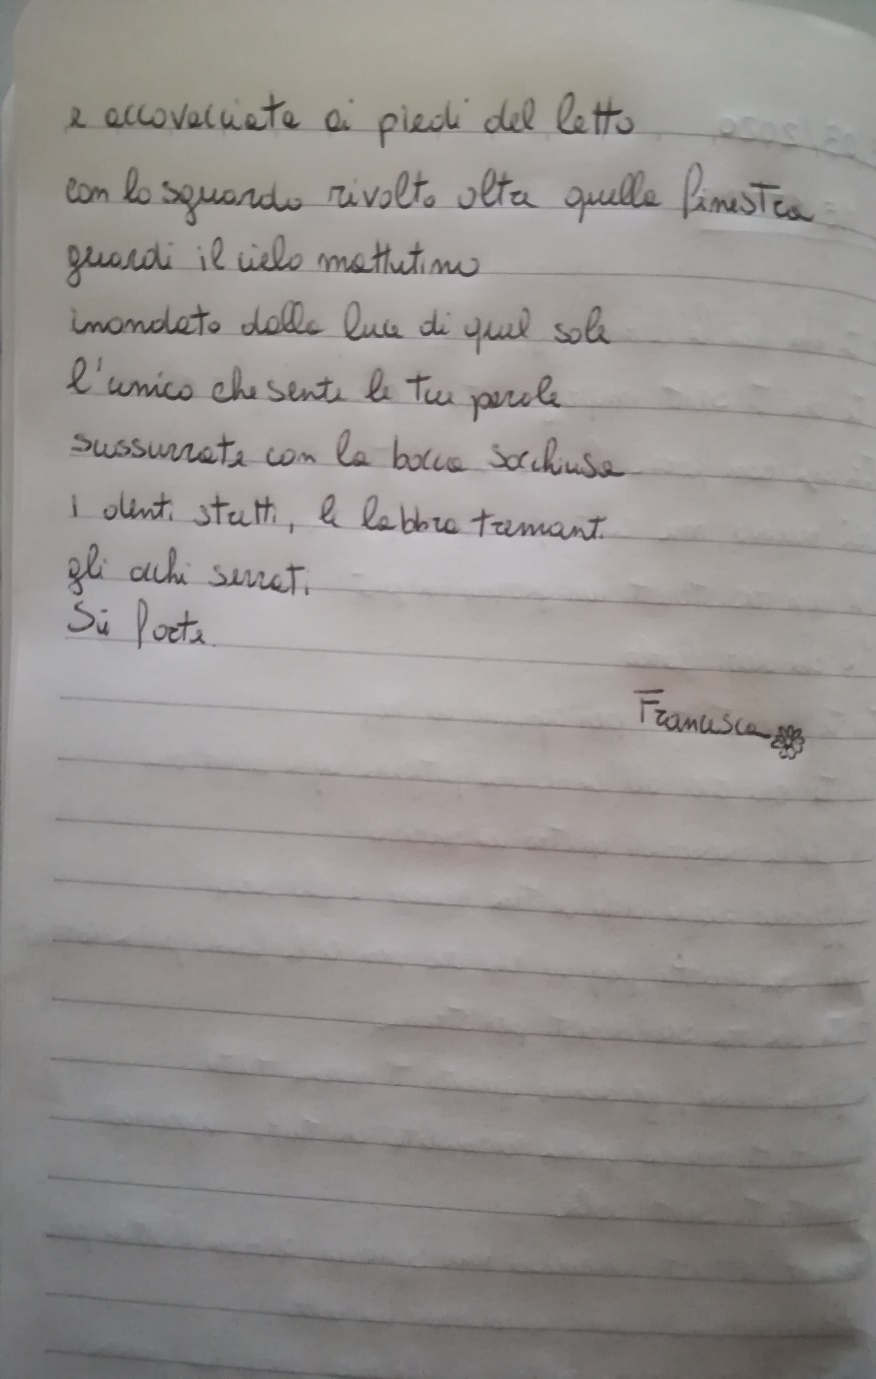 e accovacciata ai piedi del letto
con lo sguardo rivolto oltre quella finestra
guardi il cielo mattutino
inondato dalla luce di quel sole
l'unico che sente le tue parole
sussurrate con la bocca socchiusa
i denti stretti, le labbra tremanti
gli occhi serrati.
Sii forte.
Francesca